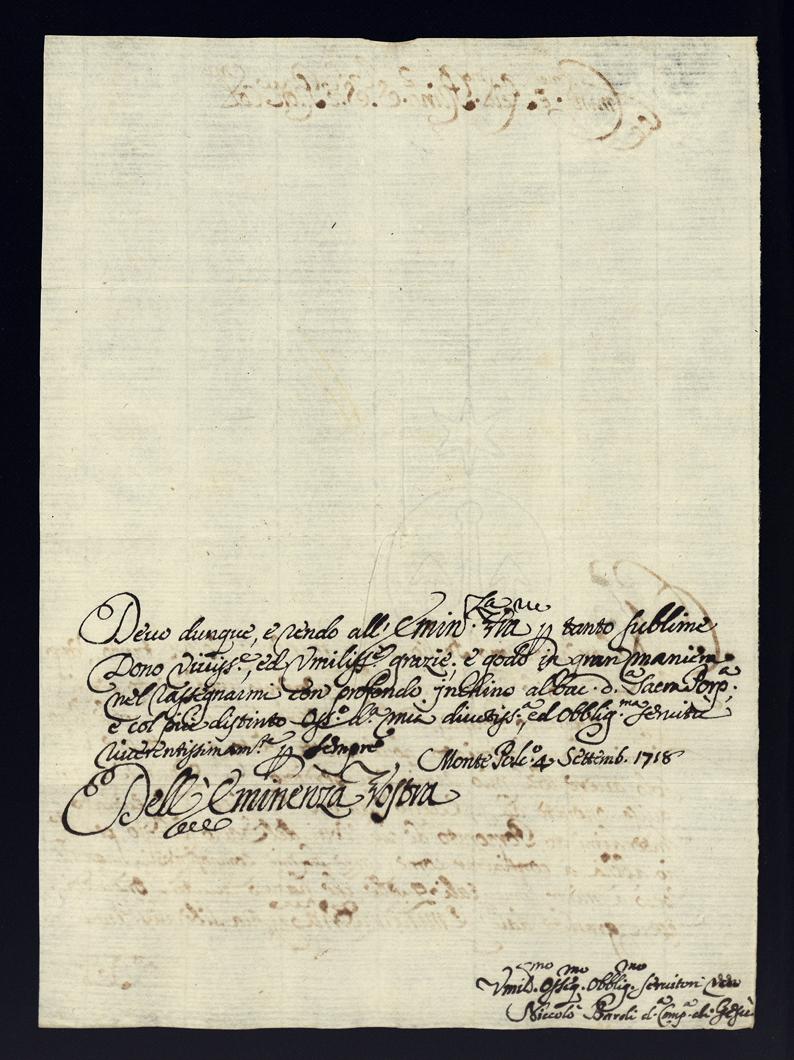 Devo dunque, e rendo all' Emin.za Vra p tanto sublime
Dono viviss.e, ed Vmiliss.e grazie; e godo in gran maniera
nel rassegnarmi con profondo inchino al bac. d.a Sacra Porp.a
e col più distinto Oss.o d.a mia divotiss.a, ed Obblig.ma servitù
riverentissimam.te p sempre
Monte Pulc.o 4 Settemb. 1718
Dell' Eminenza Vostra
Vmil.mo Osseq.mo Obblig.mo servitor vero
Niccolò d.a Comp.a di Gesù